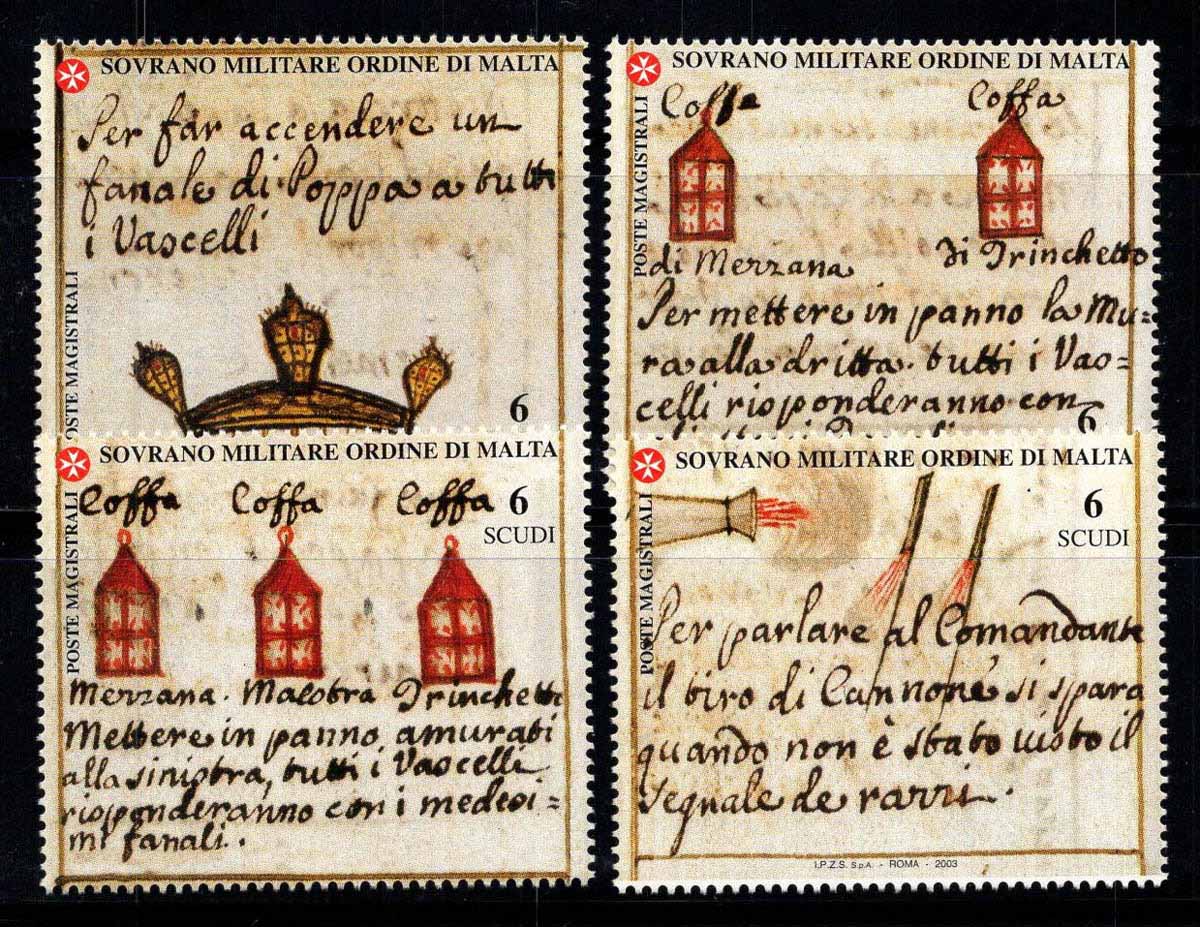 SOVRANO MILITARE ORDINE DI MALTA
POSTE MAGISTRALI
Per far accendere un
fanale di Poppa a tutti
i Vascelli
6
SOVRANO MILITARE ORDINE DI MALTA
POSTE MAGISTRALI
Coffa Coffa
di Mezzana di Trinchetto
Per mettere in panno la Mu=
ra alla dritta. tutti i Vas=
celli risponderanno con
6
SOVRANO MILITARE ORDINE DI MALTA
POSTE MAGISTRALI
Coffa Coffa Coffa
6
SCUDI
Mezzana. Maestra Trinchetto
Mettere in panno amurati
alla sinistra, tutti i Vascelli
risponderanno con i medesi=
mi fanali.
SOVRANO MILITARE ORDINE DI MALTA
POSTE MAGISTRALI
6
SCUDI
Per parlare al Comandante
il tiro di Cannone si spara
quando non è stato visto il
segnale de razzi.
I.P.Z.S. S.p.A. - ROMA - 2003